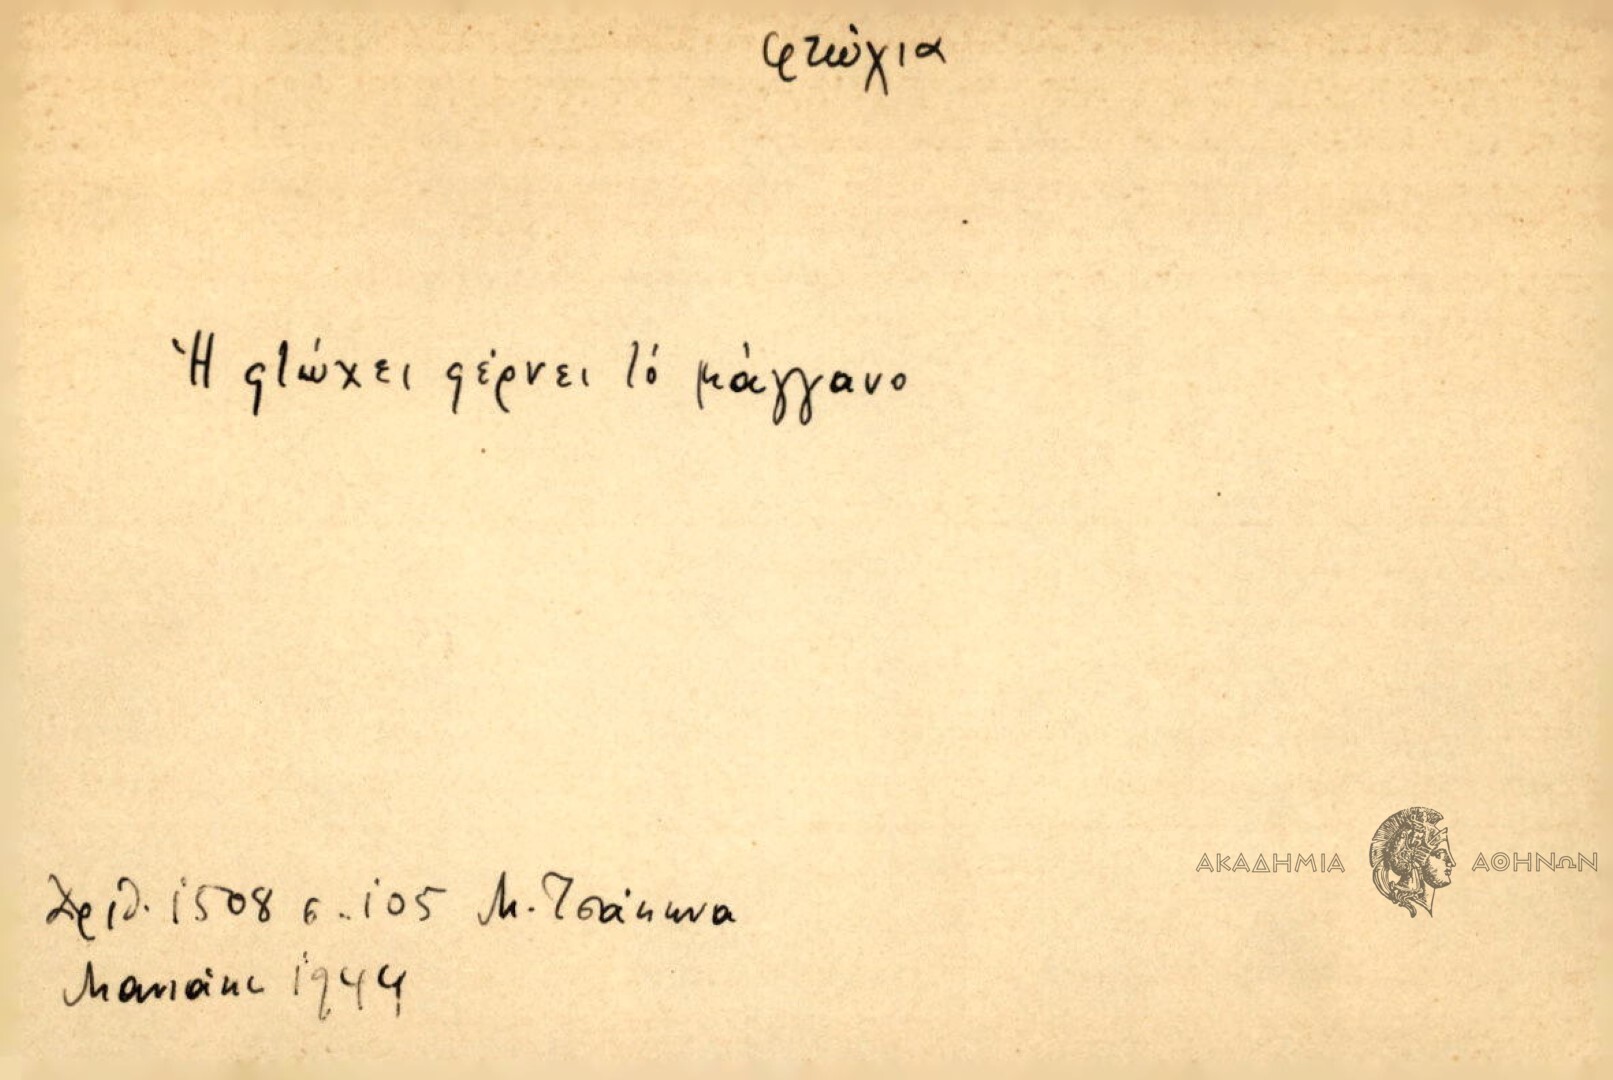 φτώχια
Ἡ φτώχει φέρνει τό μάγγανο
ΑΚΑΔΗΜΙΑ ΑΘΗΝΩΝ
Ἀριθ. 1508 σ. 105 Μ. Τσάκωνα
Μανιάκι 1944